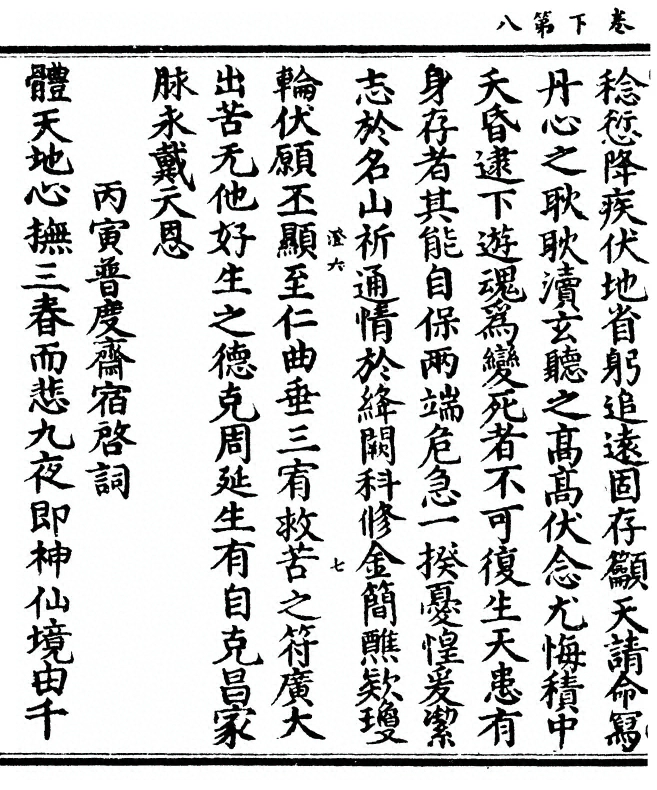 卷下第八
稔愆降疾伏地省躬追遠固存籲天請命寫
丹心之耿耿瀆玄聽之高高伏念尤悔積中
夭昏逮下遊魂爲變死者不可復生天患有
身存者其能自保兩端危急一揆憂惶爰潔
志於名山祈通情於絳闕科修金簡醮欵瓊
澄六
七
輪伏願丕顯至仁曲垂三宥救苦之符廣大
出苦无他好生之德克周延生有自克昌家
脉永戴天恩
丙寅普度齋宿啓詞
體天地心撫三春而悲九夜即神仙境由千